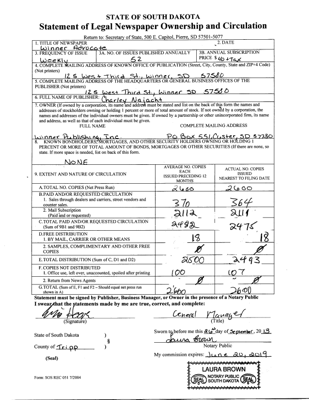 STATE OF SOUTH DAKOTA
Statement of Legal Newspaper Ownership and Circulation
Return to: Secretary of State, 500 E. Capitol, Pierre, SD 57501-5077
1. TITLE OF NEWSPAPER 2. DATE
Winner Advocate
3. FREQUENCY OF ISSUE 3A. NO. OF ISSUES PUBLISHED ANNUALLY 3B. ANNUAL SUBSCRIPTION
Weekly 52 PRICE $ 40 + Tax
4. COMPLETE MAILING ADDRESS OF KNOWN OFFICE OF PUBLICATION (Street, City, County, State and ZIP+4 Code)
(Not printers)
125 West Third St., Winner, SD 57580
5. COMPLETE MAILING ADDRESS OF THE HEADQUARTERS OR GENERAL BUSINESS OFFICES OF THE
PUBLISHER (Not printers)
125 West Third St., Winner SD 57580
6. FULL NAME OF PUBLISHER:
Charley Najacht
7. OWNER (If owned by a corporation, its name and address must be stated and list on the back of this form the names and
addresses of stockholders owning or holding 1 percent or more of total amount of stock. If not owned by a corporation, the
names and addresses of the individual owners must be given. If owned by a partnership or other unincorporated firm, its name
and address, as well as that of each individual must be given.
FULL NAME COMPLETE MAILING ADDRESS
Winner Publishing, Inc PO Box 551, Custer, SD 57730
8. KNOWN BONDHOLDERS, MORTGAGES, AND OTHER SECURITY HOLDERS OWNING OR HOLDING 1
PERCENT OR MORE OF TOTAL AMOUNT OF BONDS, MORTGAGES OR OTHER SECURITIES (If there are none, so
state. If more space is needed, list on back of this form.
NONE
9. EXTENT AND NATURE OF CIRCULATION
AVERAGE NO. COPIES
EACH
ISSUED PRECEDING 12
MONTHS
ACTUAL NO. COPIES
ISSUED
NEAREST TO FILING DATE
A. TOTAL NO. COPIES (Net Press Run) 2600 2600
B. PAID AND/OR REQUESTED CIRCULATION
1. Sales through dealers and carriers, street vendors and
counter sales. 370 364
2. Mail Subscription
(Paid and/or requested) 2112 2111
C. TOTAL PAID AND/OR REQUESTED CIRCULATION
(Sum of 9B1 and 9B2) 2482 2475
D. FREE DISTRIBUTION
1. BY MAIL, CARRIER OR OTHER MEANS 18 18
2. SAMPLES, COMPLIMENTARY AND OTHER FREE
COPIES
E. TOTAL DISTRIBUTION (Sum of C, D1 and D2) 2500 2493
F. COPIES NOT DISTRIBUTED
1. Office use, left over, unaccounted, spoiled after printing 100 107
2. Return from News Agents
G. TOTAL (Sum of E, F1 and F2 – Should equal net press run
shown in A) 2600 2600
Statement must be signed by Publisher, Business Manager, or Owner in the presence of a Notary Public
I swear that the statements made by me are true, correct, and complete:
General Manager
(Signature) (Title)
State of South Dakota )
§
County of Tripp )
Sworn to before me this day of September, 20
Laura Brown
Notary Public
(Seal)
My commission expires: June 20, 2019
LAURA BROWN
NOTARY PUBLIC
SOUTH DAKOTA
Form: SOS REC 051 7/2004